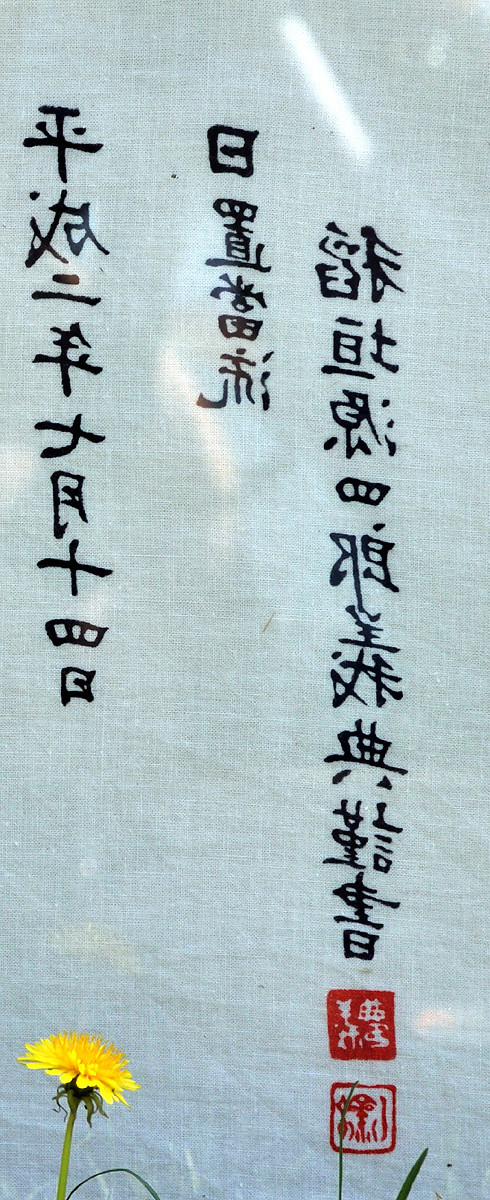 平成二年七月十四日
日置當流
稲垣源四郎義典謹書